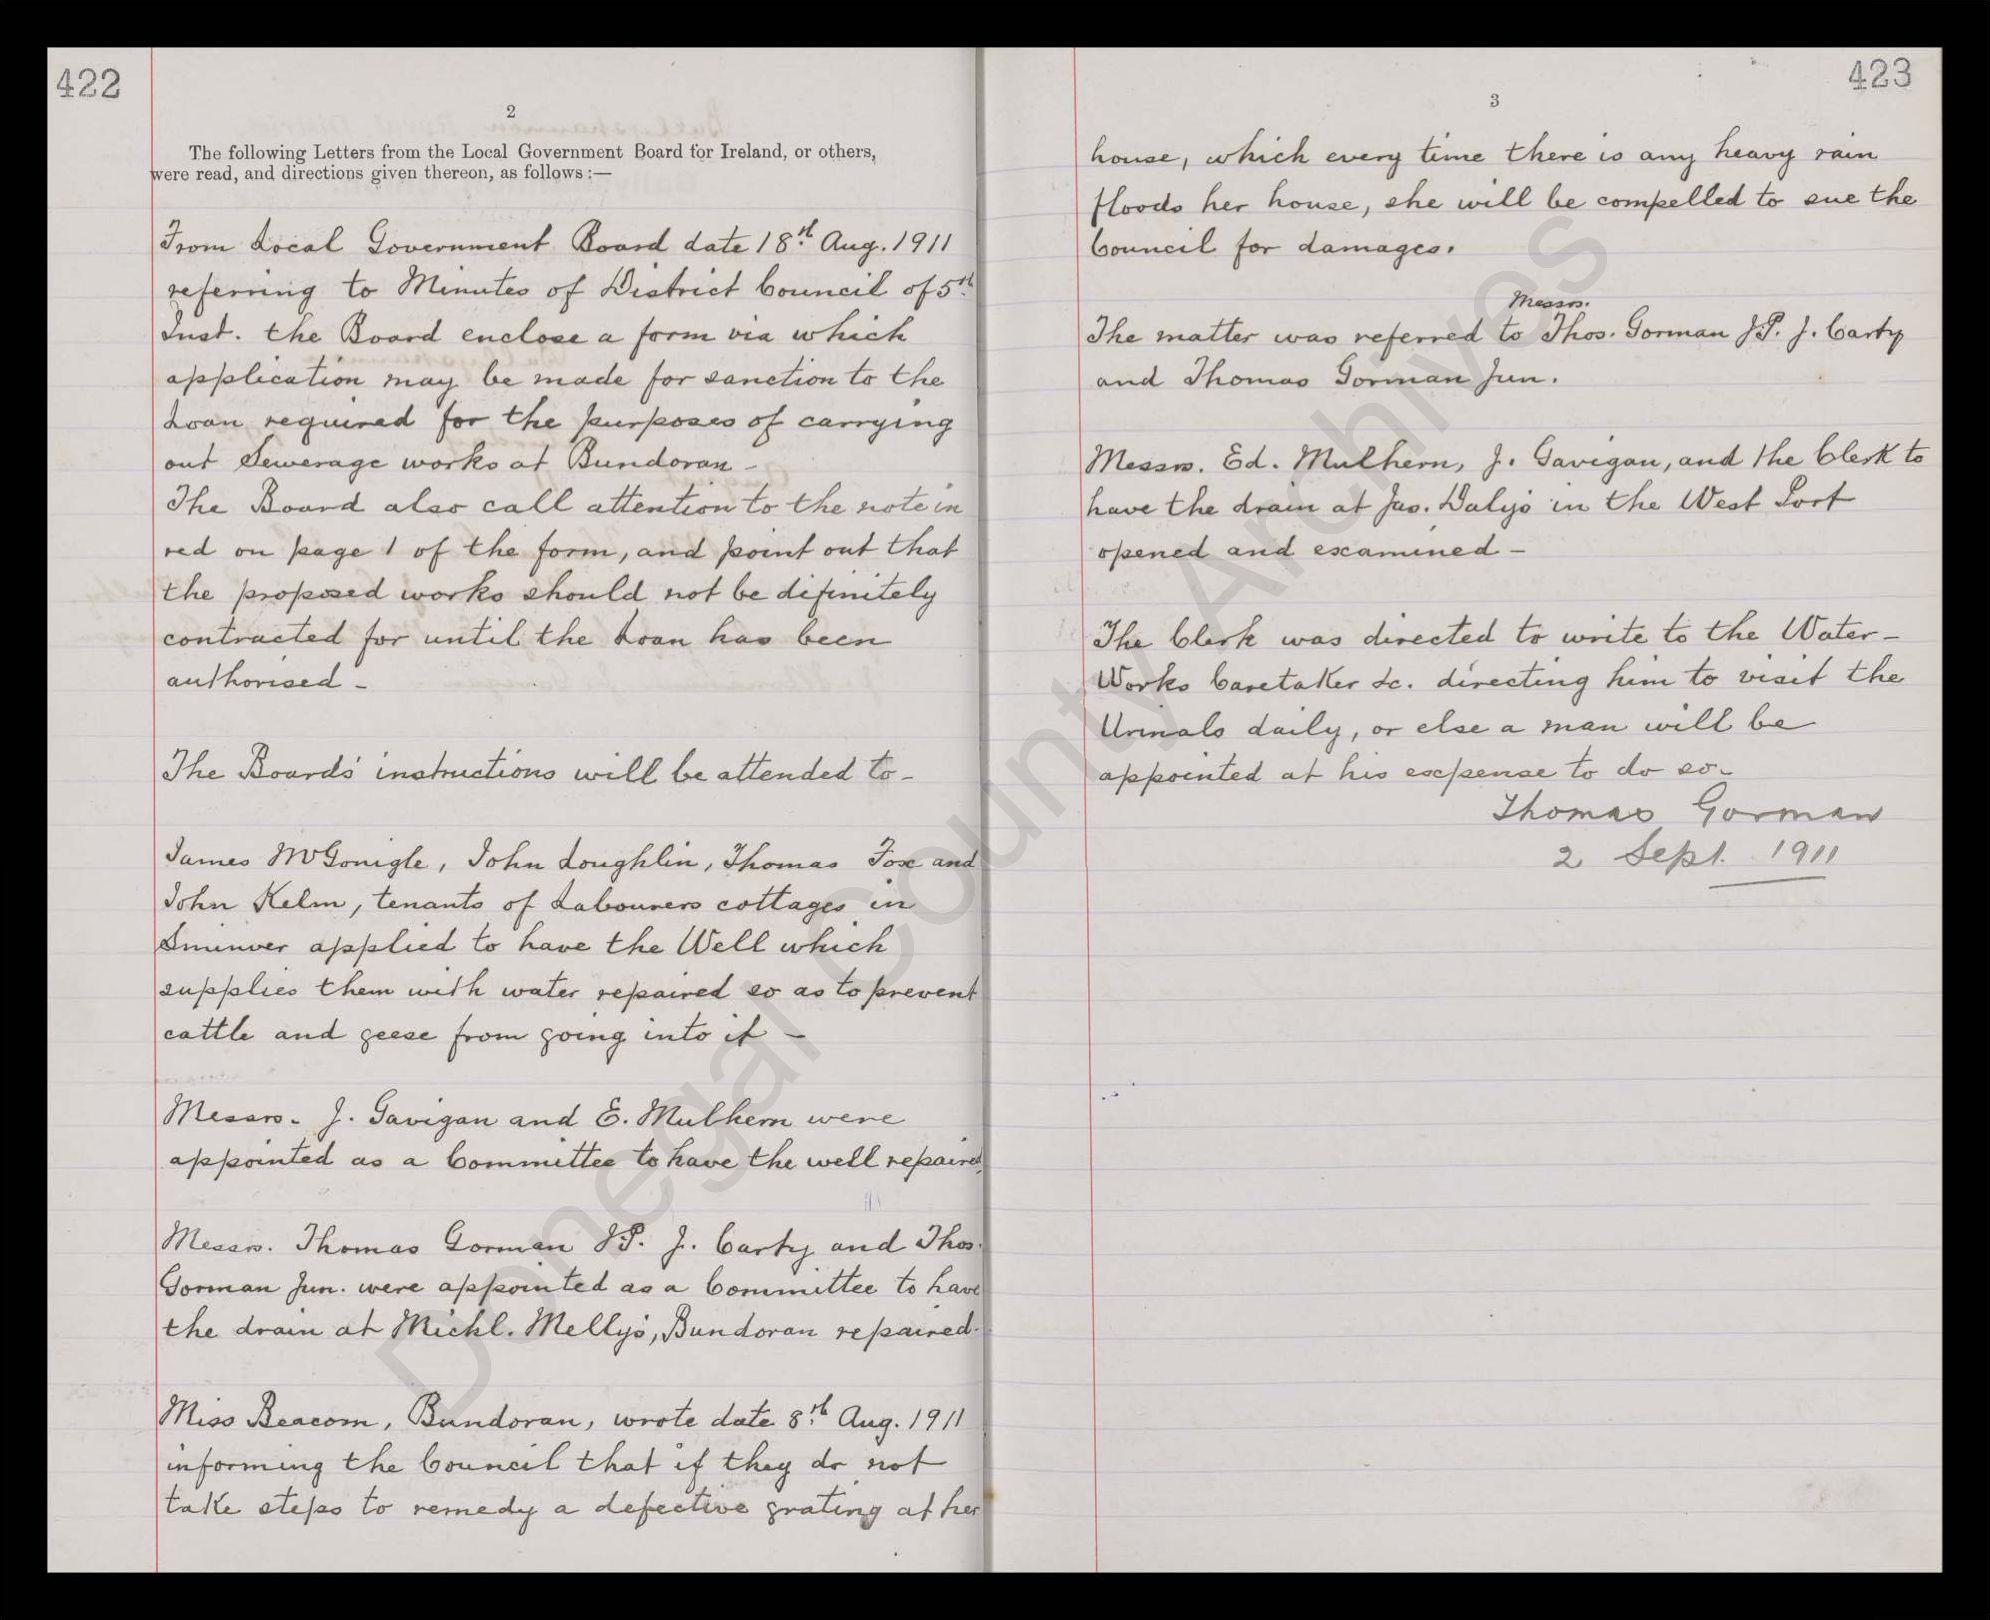 422
2
The following Letters from the Local Government Board for Ireland, or others,
were read, and directions given thereon, as follows :—
From Local Government Board date 18th Aug. 1911
referring to Minutes of District Council of 5th
Inst. the Board enclose a form via which
application may be made for sanction to the
Loan required for the purposes of carrying
out Sewerage works at Bundoran -
The Board also call attention to the note in
red on page 1 of the form, and point out that
the proposed works should not be difinitely
contracted for until the Loan has been
authorised -
The Boards' instructions will be attended to -
James McGonigle, John Loughlin, Thomas Fox and
John Kelm, tenants of Labourers cottages in
Sminver applied to have the Well which
supplies them with water repaired so as to prevent
cattle and geese from going into it -
Messrs. J. Gavigan and E. Mulhern were
appointed as a Committee to have the well repaired
Messrs. Thomas Gorman J.P. J. Carty and Thos.
Gorman Jun. were appointed as a Committee to have
the drain at Michl. Melly's, Bundoran repaired -
Miss Beacom, Bundoran, wrote date 8th Aug. 1911
informing the Council that if they do not
take steps to remedy a defective grating at her
423
3
house, which every time there is any heavy rain
floods her house, she will be compelled to sue the
Council for damages.
Messrs.
The matter was referred to Thos. Gorman J.P. J. Carty
and Thomas Gorman Jun.
Messrs. Ed. Mulhern, J. Gavigan, and the Clerk to
have the drain at Jas. Daly's in the West Port
opened and examined -
The Clerk was directed to write to the Water-
Works Caretaker &c. directing him to visit the
Urinals daily, or else a man will be
appointed at his expense to do so -
Thomas Gorman
2 Sept. 1911
Donegal County Archives